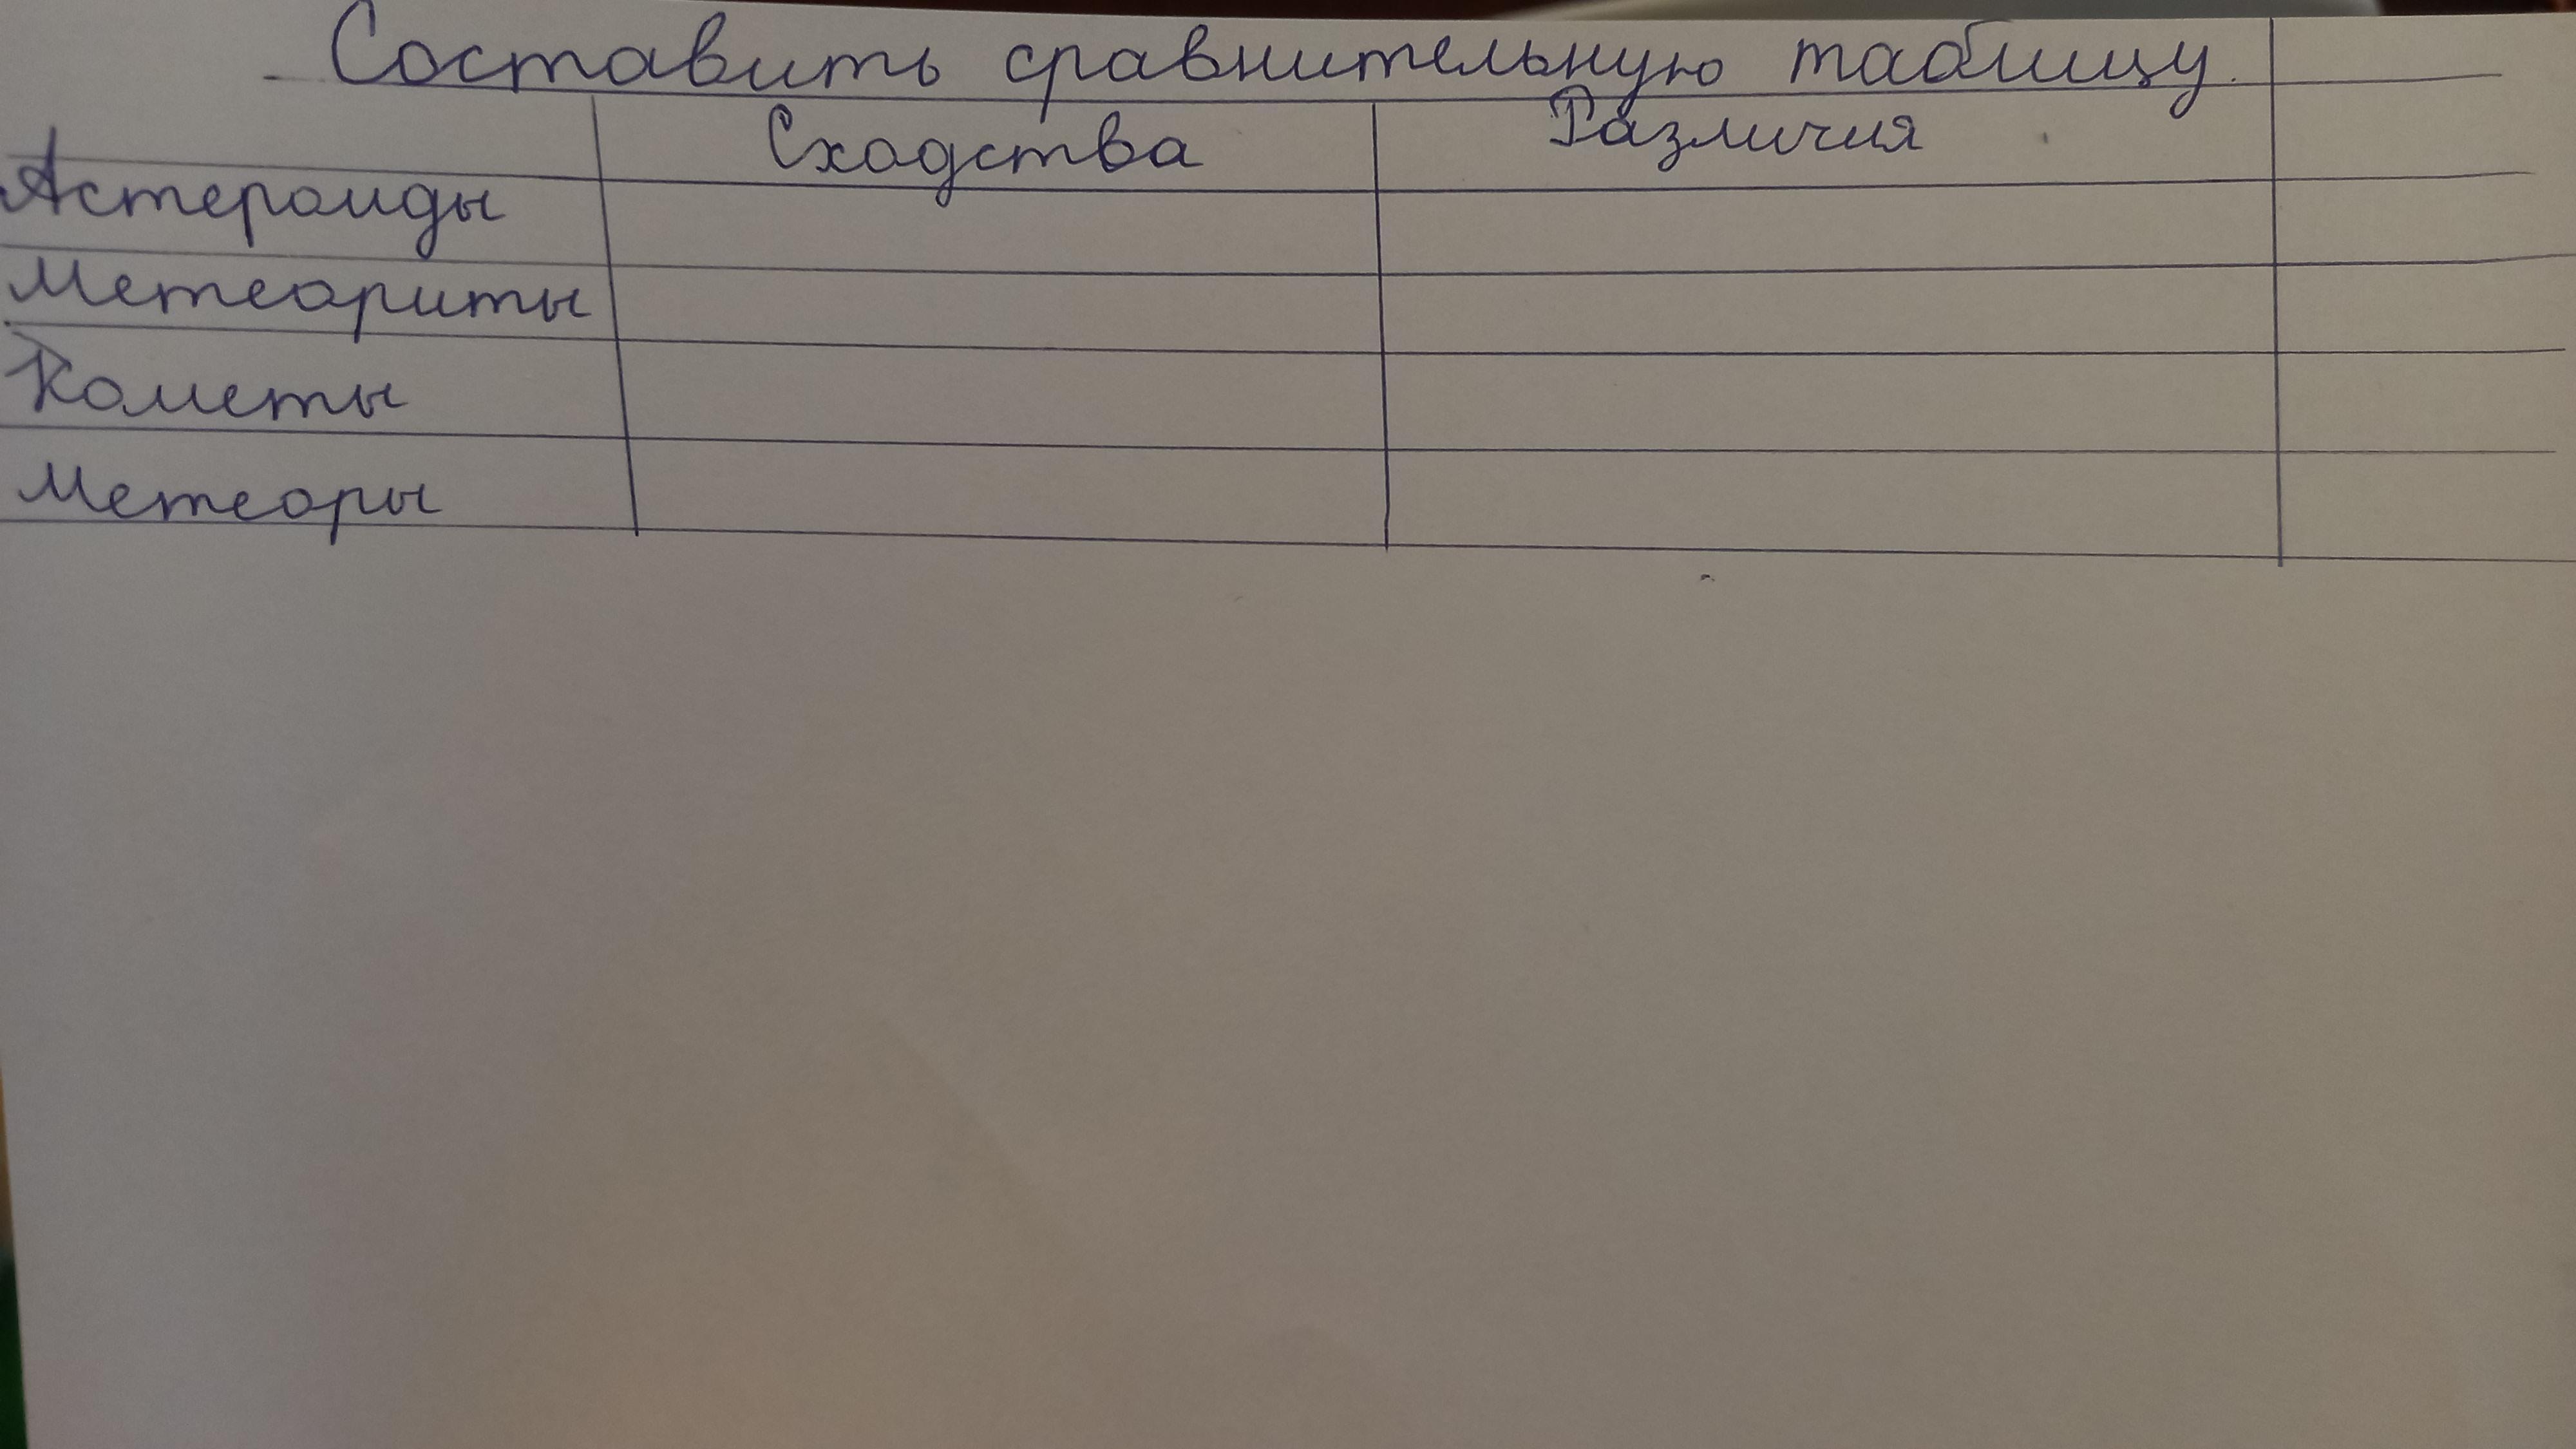 Составить сравнительную таблицу.
Сходства Различия
Астероиды
Метеориты
Кометы
Метеоры